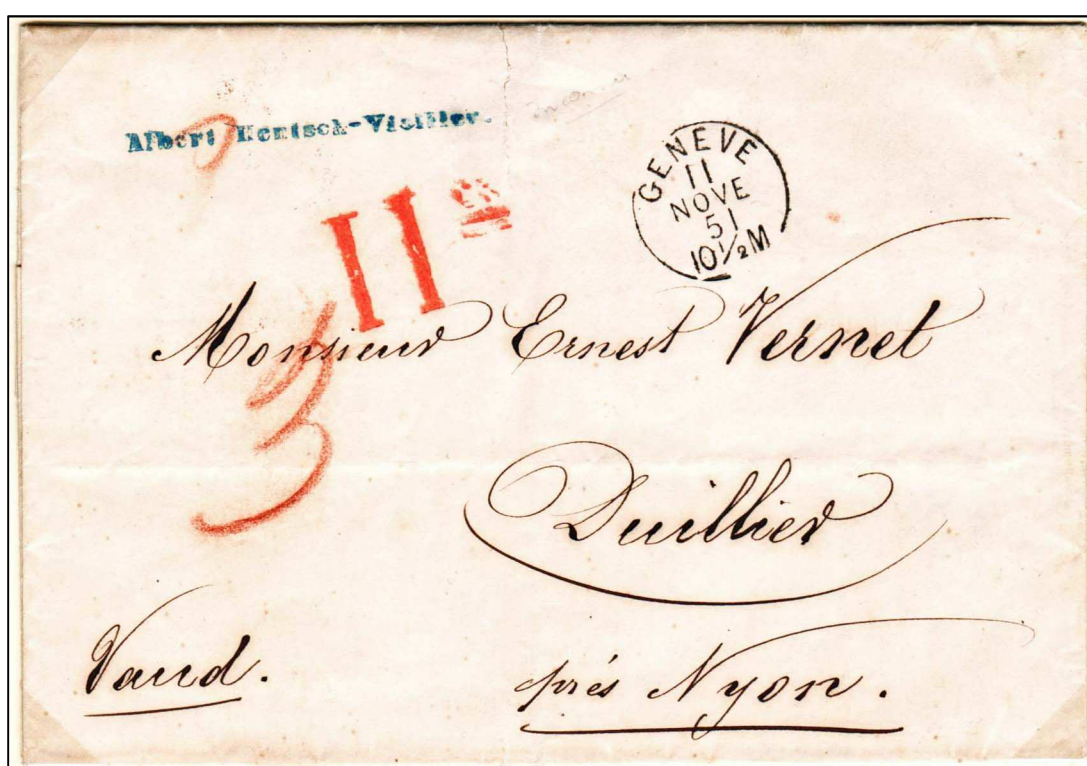 Albert Hentsch-
GENEVE
11
NOVE
51
10½M
11
Monsieur Ernest Vernet
3
Duillier
Vaud.
près Nyon.